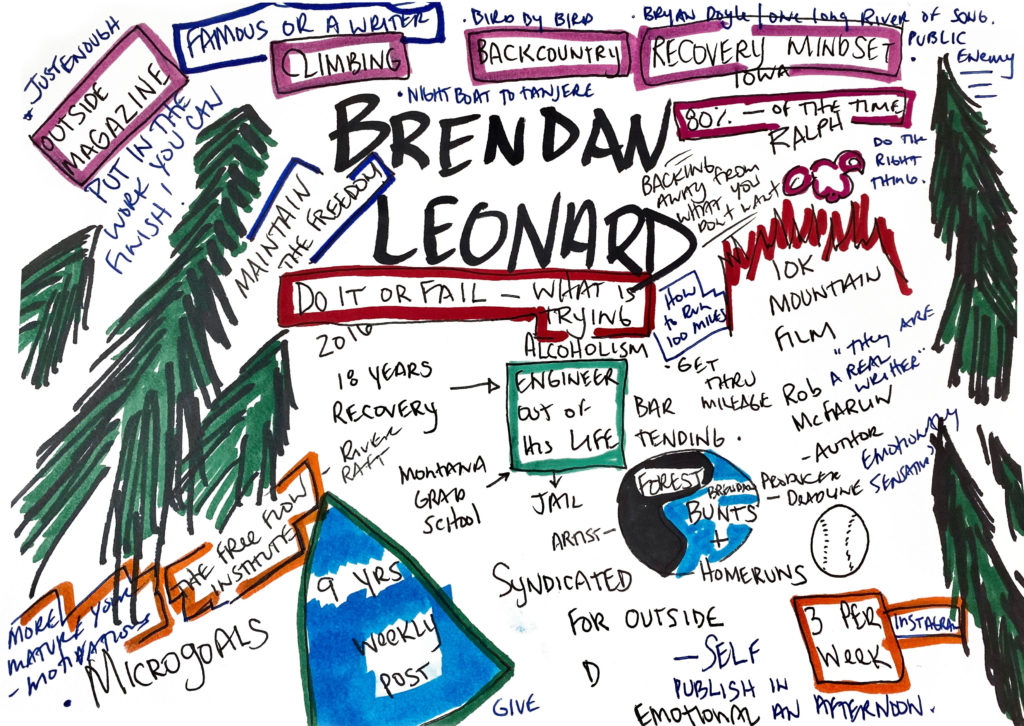 FAMOUS OR A WRITER
• BIRD BY BIRD
• BRYAN DOYLE | ONE LONG RIVER OF SONG.
• PUBLIC
ENEMY
• JUSTENOUGH
OUTSIDE
MAGAZINE
CLIMBING
BACKCOUNTRY
RECOVERY MINDSET
IOWA
• NIGHT BOAT TO TANJERE
80% — OF THE TIME
RALPH
DO THE
RIGHT
THING.
PUT IN THE
WORK YOU CAN
FINISH,
BRENDAN
LEONARD
MAINTAIN
THE FREEDOM
BACKING
AWAY FROM
WHAT YOU
DON'T WANT
DO IT OR FAIL — WHAT IS
TRYING
HOW
TO RUN
100 MILES
10K
MOUNTAIN
FILM
2016
18 YEARS
RECOVERY
- RIVER
RAFT
ALCOHOLISM
ENGINEER
OUT OF
HIS LIFE
BAR
TENDING.
• GET
THRU
MILEAGE
ROB
MCFARLIN
- AUTHOR
PRODUCER
- DEADLINE
"THEY ARE
A REAL
WRITER"
EMOTIONALLY
MONTANA
GRAD
SCHOOL
JAIL
ARTIST-
FOREST
BRENDAN
BUNTS
+
- HOMERUNS
THE FREE FLOW
INSTITUTE
MORE
MATURE YOUR
- MOTIVATIONS
• MICROGOALS
9 YRS
WEEKLY
POST
SYNDICATED
FOR OUTSIDE
D
— SELF
PUBLISH IN
AN AFTERNOON.
EMOTIONAL
GIVE
3 PER
WEEK
INSTAGRAM